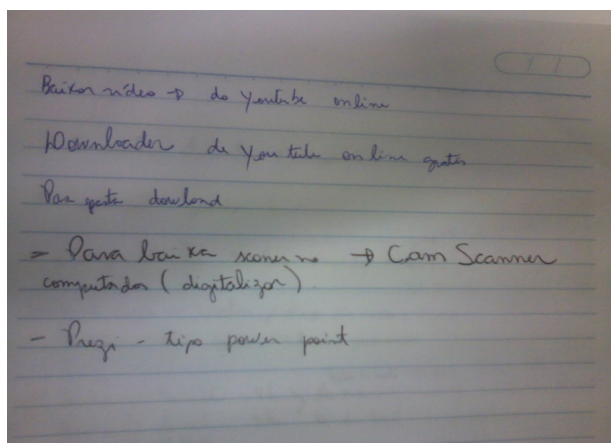 Baixar vídeo → do youtube online
Downloader de Youtube online gratis
dowlond
- Para baixa scaner no → Cam Scanner
computador (digitalizar)
- Prezi - tipo power point